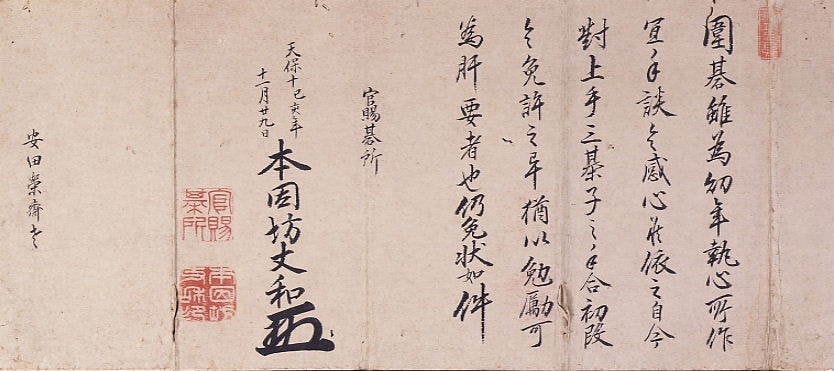 圍碁雖為幼年執心所作
宜手談令感心依之自今
對上手三棊子之手合初段
令免許之畢猶以勉勵可
為肝要者也仍免状如件
官賜碁所
天保十己亥年
十一月廿九日
本因坊丈和
官賜
棊所
安田榮齋